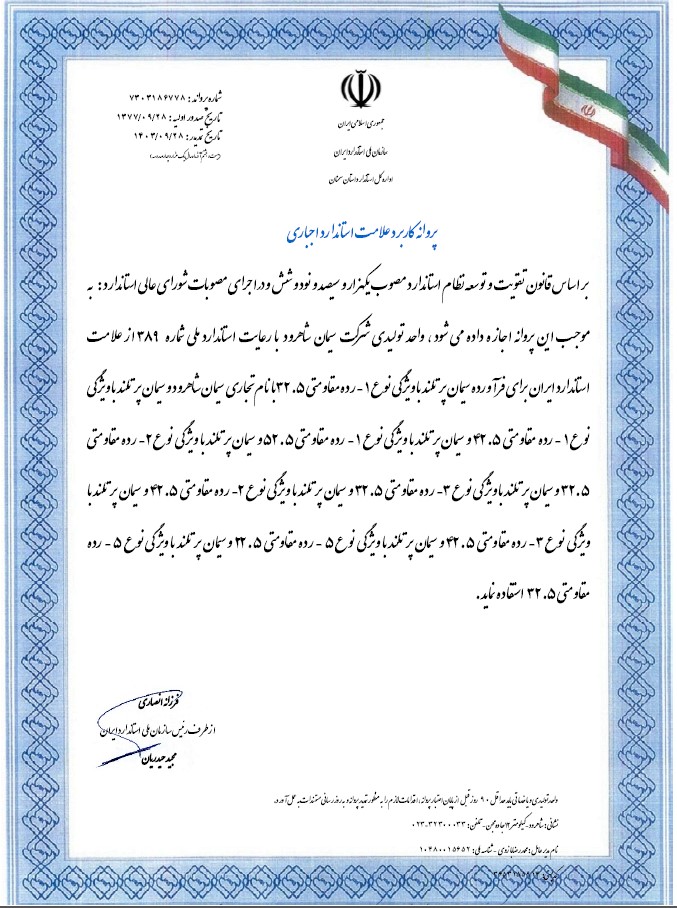 شماره پروانه : ۷۳۰۳۱۸۶۷۷۸
تاریخ صدور اولیه : ۱۳۷۷/۰۹/۲۸
تاریخ تمدید : ۱۴۰۳/۰۹/۲۸
جمهوری اسلامی ایران
سازمان ملی استاندارد ایران
اداره کل استاندارد استان سمنان
پروانه کاربرد علامت استاندارد اجباری
بر اساس قانون تقویت و توسعه نظام استاندارد مصوب یکهزار و سیصد و نود و شش و در اجرای مصوبات شورای عالی استاندارد : به
موجب این پروانه اجازه داده می شود ، واحد تولیدی شرکت سیمان شاهرود با رعایت استاندارد ملی شماره ۳۸۹ از علامت
استاندارد ایران برای فرآورده سیمان پرتلند با ویژگی نوع ۱- رده مقاومتی ۳۲.۵ با نام تجاری سیمان شاهرود و سیمان پرتلند با ویژگی
نوع ۱- رده مقاومتی ۴۲.۵ و سیمان پرتلند با ویژگی نوع ۱- رده مقاومتی ۵۲.۵ و سیمان پرتلند با ویژگی نوع ۲- رده مقاومتی
۳۲.۵ و سیمان پرتلند با ویژگی نوع ۳- رده مقاومتی ۳۲.۵ و سیمان پرتلند با ویژگی نوع ۲- رده مقاومتی ۴۲.۵ و سیمان پرتلند با
ویژگی نوع ۳- رده مقاومتی ۴۲.۵ و سیمان پرتلند با ویژگی نوع ۵ - رده مقاومتی ۳۲.۵ و سیمان پرتلند با ویژگی نوع ۵ - رده
مقاومتی ۳۲.۵ استفاده نماید .
فرزانه انصاری
از طرف رئیس سازمان ملی استاندارد ایران
مجید حیدریان
واحد تولیدی و یا خدماتی باید حداقل ۹۰ روز قبل از پایان اعتبار پروانه ، اقدامات لازم را به منظور تمدید پروانه و به روز رسانی مستندات، به عمل آورد.
نشانی : شاهرود - کیلومتر ۱۲ جاده مجن - تلفن : ۰۲۳-۳۲۳۰۰۰۳۳
نام مدیر عامل : محمدرضا - شناسه ملی : ۱۰۴۸۰۰۱۵۶۵۲